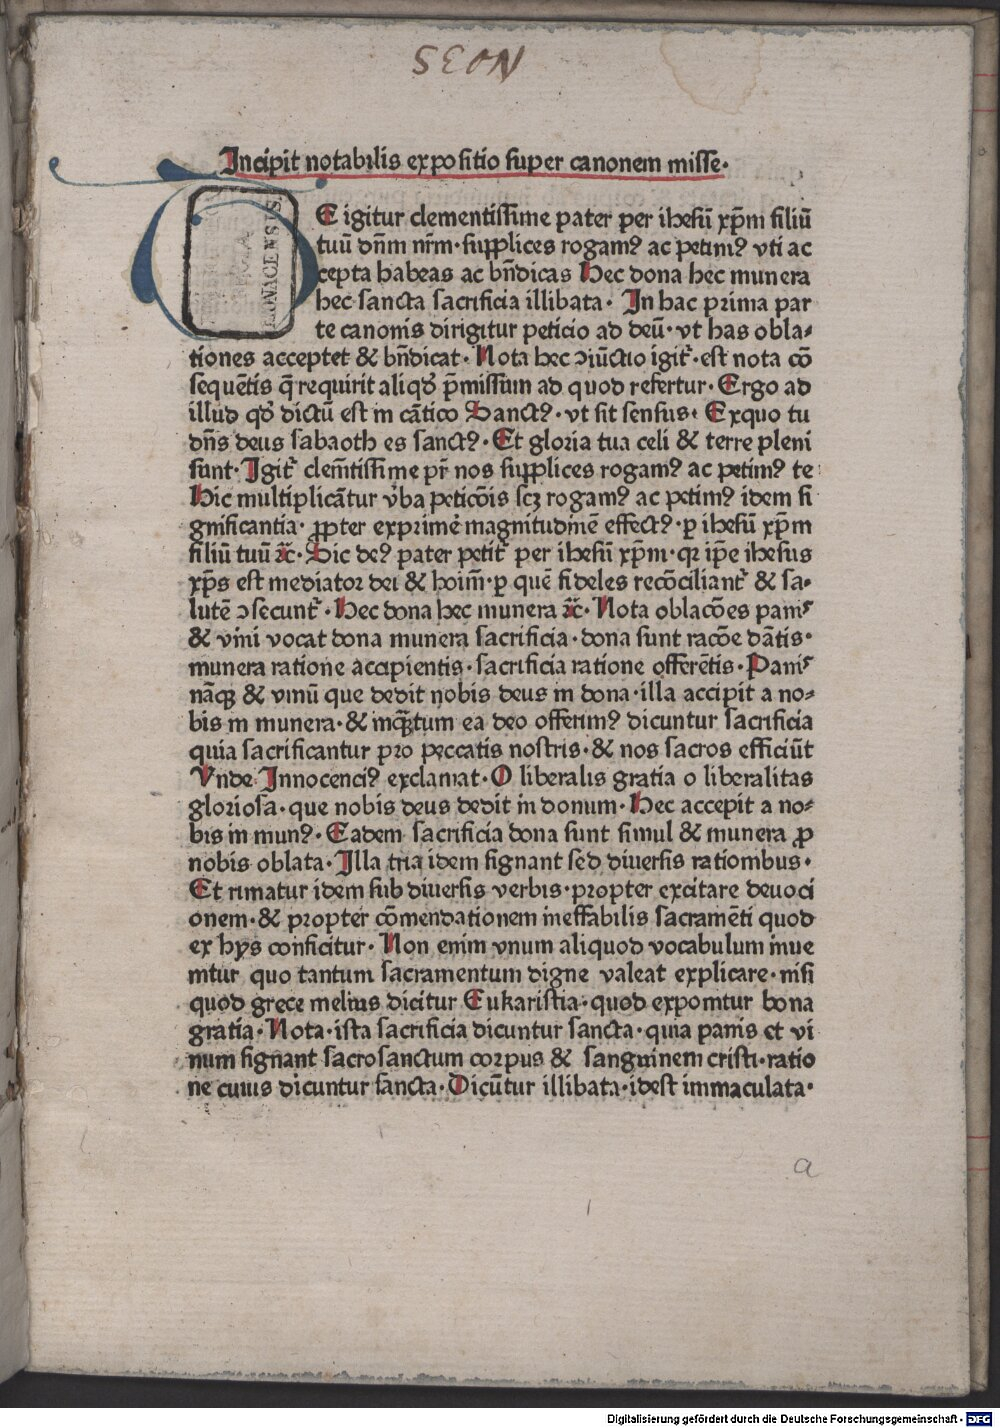 SEON
Incipit notabilis expositio super canonem misse·
E igitur clementissime pater per ihesū xp̄m filiū
tuū dn̄m nr̄m· supplices rogamꝰ ac petimꝰ vti ac
cepta habeas ac bn̄dicas Hec dona hec munera
hec sancta sacrificia illibata· In hac prima par
te canonis dirigitur peticio ad deū· vt has obla-
tiones acceptet & bn̄dicat· Nota hec ↄiūctio igit̃· est nota cō
sequētis q̄ requirit aliqd̕ p̄missum ad quod refertur· Ergo ad
illud qd̕ dictū est in cātico Sanctꝰ· vt sit sensus· Exquo tu
dn̄s deus sabaoth es sanctꝰ· Et gloria tua celi & terre pleni
sunt· Igit̃ clem̄tissime pr̄ nos supplices rogamꝰ ac petimꝰ te
Hic multiplicātur v̕ba peticōis scꝫ rogamꝰ ac petimꝰ idem si
gnificantia· ꝓpter exprimē magnitudinē effectꝰ· ꝑ ihesū xp̄m
filiū tuū ⁊c̄· Sic deꝰ pater petit̃ per ihesū xp̄m· qr ip̄e ihesus
xp̄s est mediator dei & hoim̄· ꝑ quē fideles recōciliant̃ & sa-
lutē ↄsecunt̃· Hec dona hec munera ⁊c̄· Nota oblacōes panis
& vini vocat dona munera sacrificia· dona sunt racōe dātis·
munera ratione accipientis· sacrificia ratione offerētis· Panis
nāqꝫ & vinū que dedit nobis deus in dona· illa accipit a no-
bis in munera· & inqꝫtum ea deo offerimꝰ dicuntur sacrificia
quia sacrificantur pro peccatis nostris· & nos sacros efficiūt
Vnde Innocenciꝰ exclamat· O liberalis gratia o liberalitas
gloriosa· que nobis deus dedit in donum· Hec accepit a no-
bis in munꝰ· Eadem sacrificia dona sunt simul & munera ꝓ
nobis oblata· Illa tria idem signant sed diuersis rationibus·
Et rimatur idem sub diuersis verbis· propter excitare deuoci
onem· & propter cōmendationem ineffabilis sacramēti quod
ex hys conficitur· Non enim vnum aliquod vocabulum inue
nitur quo tantum sacramentum digne valeat explicare· nisi
quod grece melius dicitur Eukaristia· quod exponitur bona
gratia· Nota· ista sacrificia dicuntur sancta· quia panis et vi
num signant sacrosanctum corpus & sanguinem cristi· ratio
ne cuius dicuntur sancta· Dicūtur illibata· idest immaculata·
a
Digitalisierung gefördert durch die Deutsche Forschungsgemeinschaft - DFG